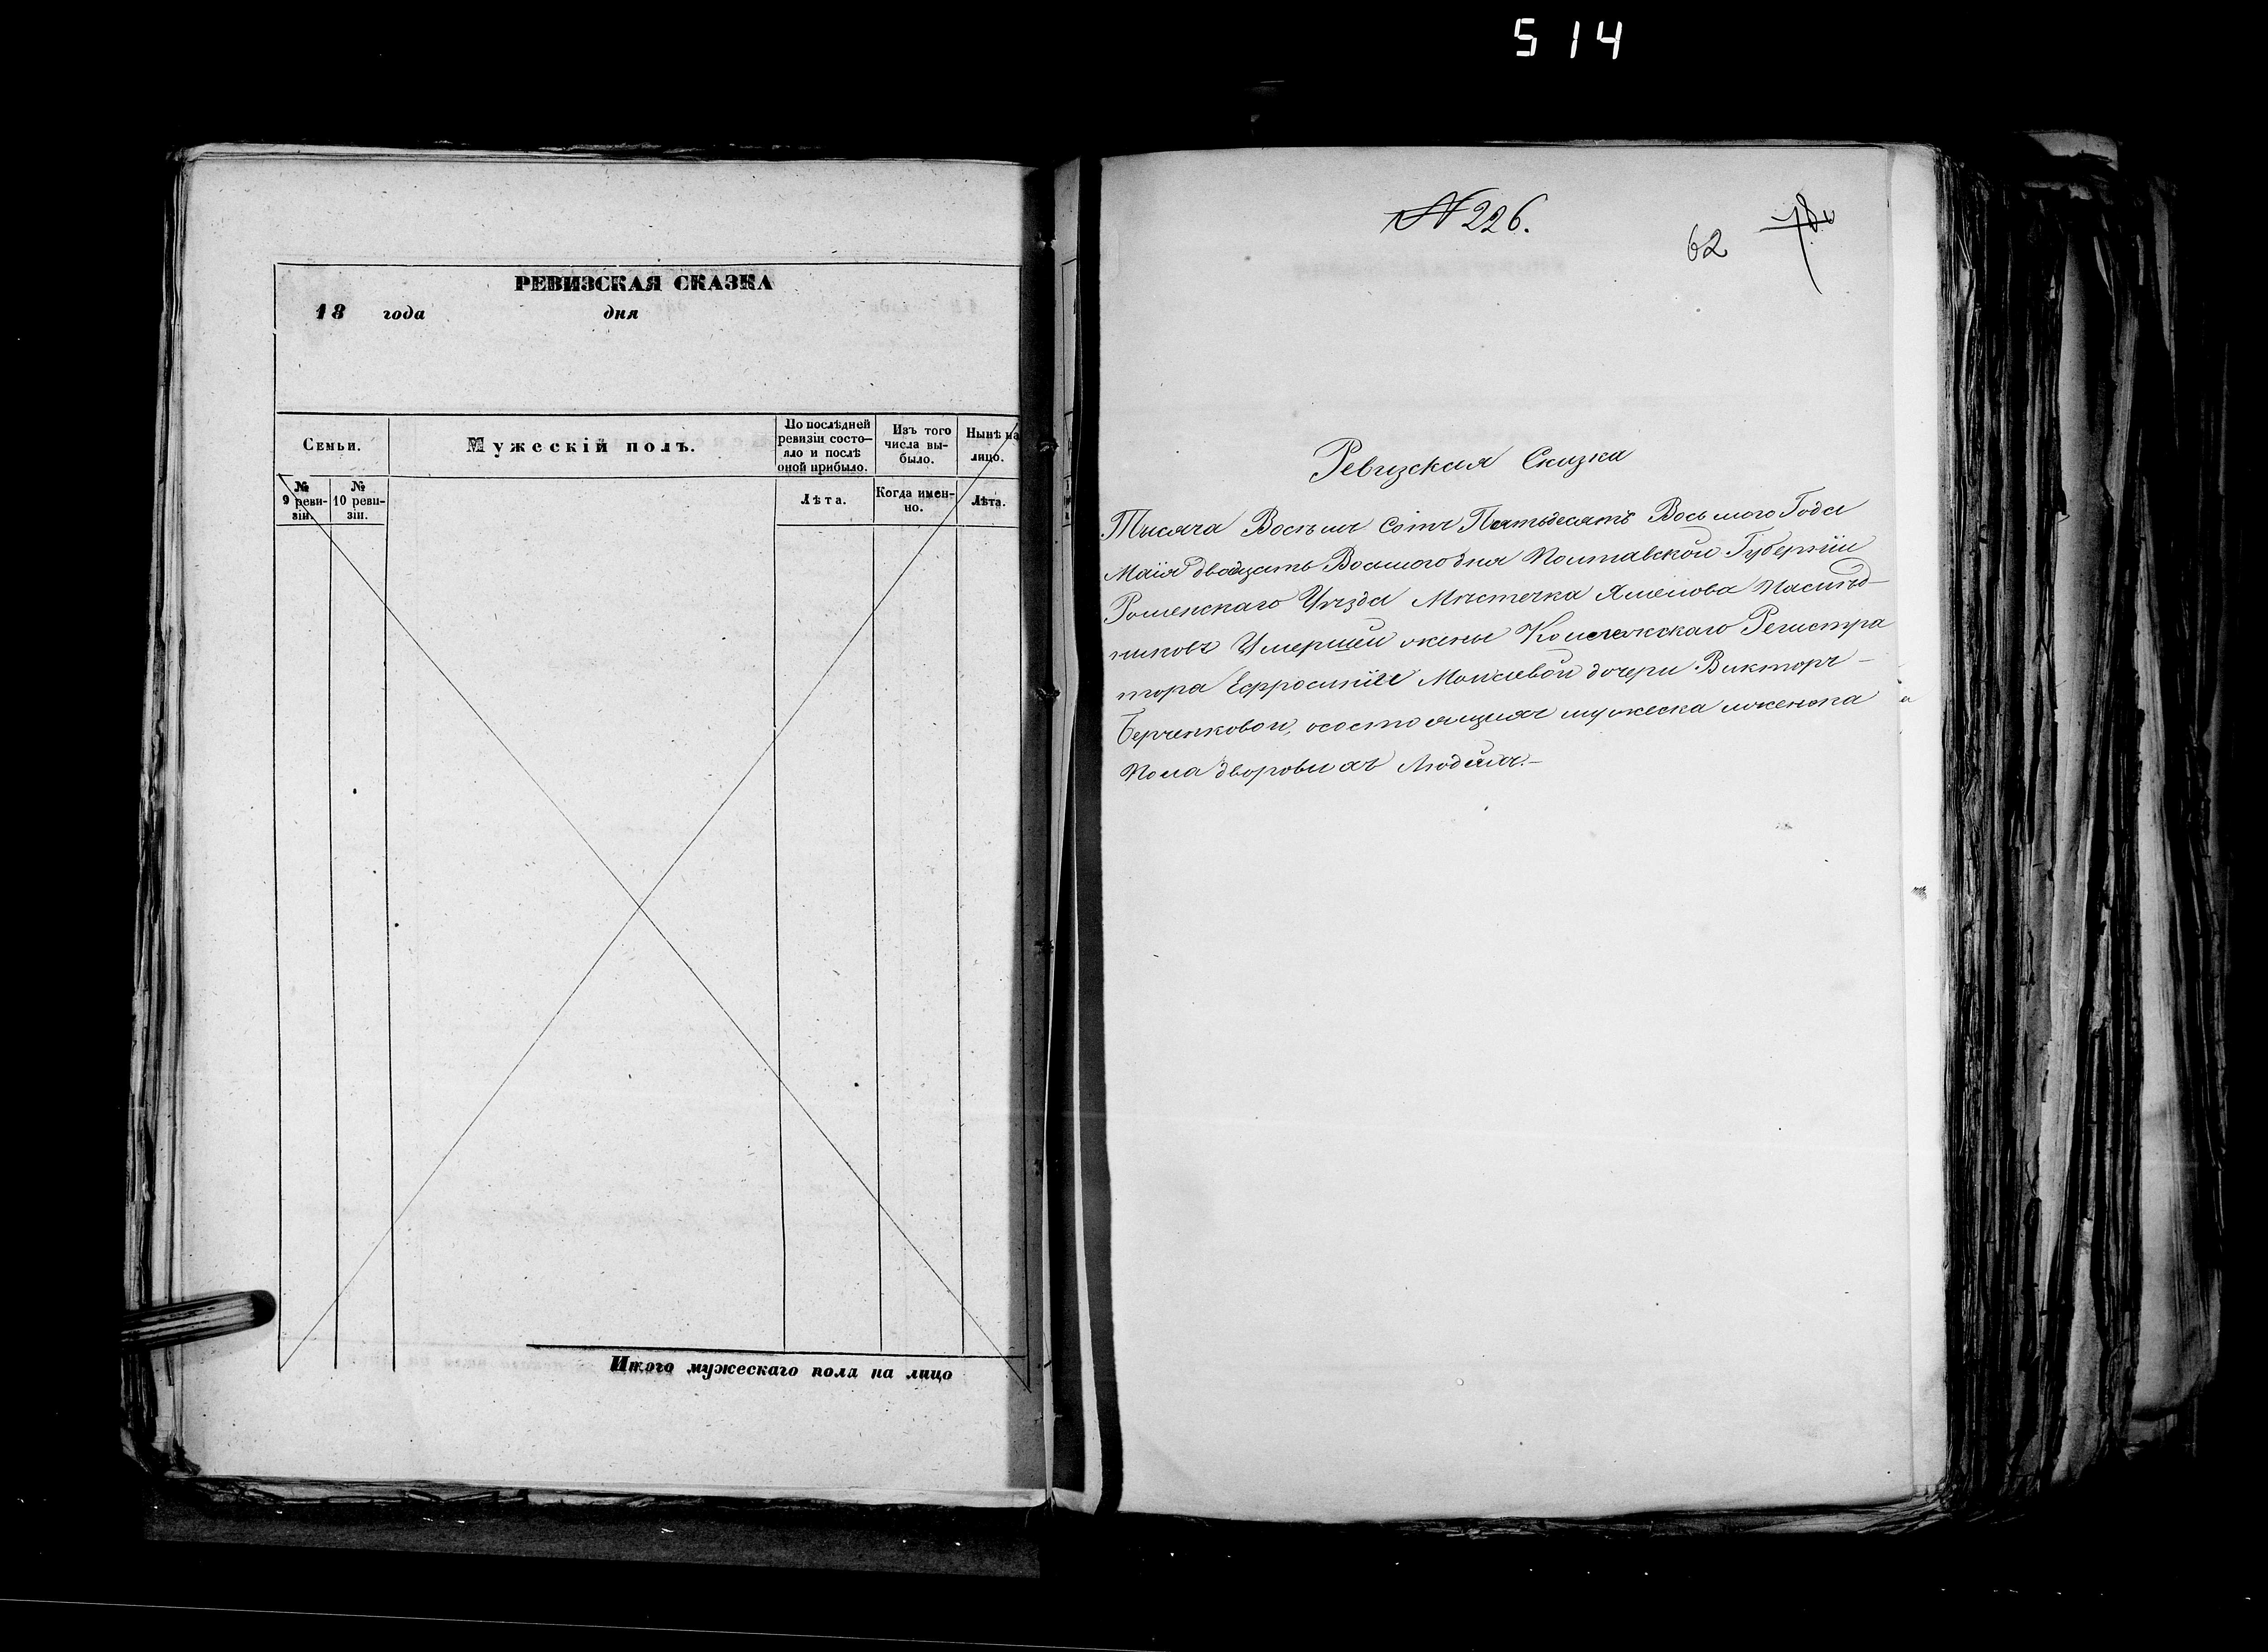 514
РЕВИЗСКАЯ СКАЗКА
18 года дня
Семьи.
Мужескій полъ.
По послѣдней ревизіи состо-
яло и послѣ оной прибыло.
Изъ того числа вы-
было.
Нынѣ на лицо.
№ 9 реви-
зіи.
№ 10 реви-
зіи.
Лѣта.
Когда имен-
но.
Лѣта.
Итого мужескаго пола на лицо
№ 226.
62
Ревизская Сказка
Тысяча Восемъ Сотъ Пятьдесятъ Восьмого Года
Маія двадцать Восьмого дня Полтавской Губерніи
Роменскаго Уѣзда Мѣстечка Смелова Наслѣд-
никовъ Умершей жены Колежскаго Регистра
тора Ефросиніи Моисѣевой дочери Викторъ-
Берченковой, осостоящихъ мужеска иженска
Пола дворовыхъ Людяхъ.-